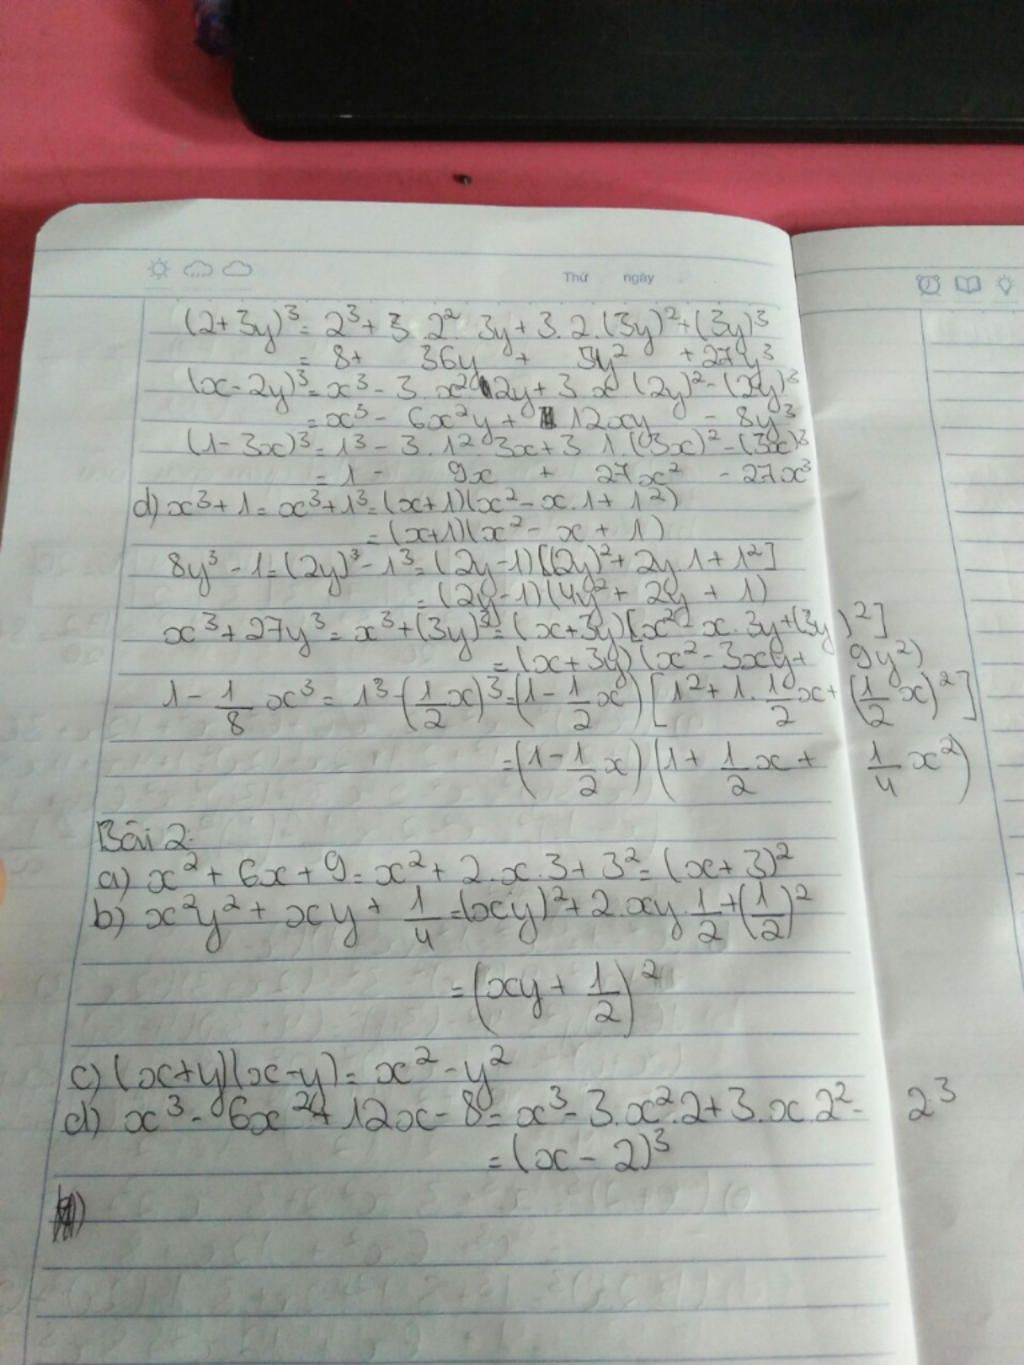 Thứ ngày
(2+3y)³= 2³+ 3.2². 3y+3.2.(3y)²+(3y)³
= 8+ 36y + 54y² +27y³
(x-2y)³=x³-3.x².2y+3.x.(2y)²-(2y)³
=x³- 6x²y+ 12xy - 8y³
(1-3x)³=1³-3.1².3x+3.1.(3x)²-(3x)³
=1- 9x + 27x² -27x³
d) x³+1= x³+1³=(x+1)(x²-x.1+1²)
= (x+1)(x²-x+1)
8y³-1=(2y)³-1³=(2y-1)[(2y)²+2y.1+1²]
=(2y-1)(4y²+2y+1)
x³+27y³=x³+(3y)³=(x+3y)[x²-x.3y+(3y)²]
=(x+3y)(x²-3xy+9y²)
1-1/8 x³= 1³-(1/2x)³=(1-1/2x)[1²+1.1/2x+(1/2x)²]
=(1-1/2x)(1+1/2x+1/4x²)
Bài 2:
a) x²+6x+9=x²+2.x.3+3²=(x+3)²
b) x²y²+xy+1/4=(xy)²+2.xy.1/2+(1/2)²
=(xy+1/2)²
c) (x+y)(x-y)=x²-y²
d) x³-6x²+12x-8=x³-3.x².2+3.x.2²-2³
=(x-2)³